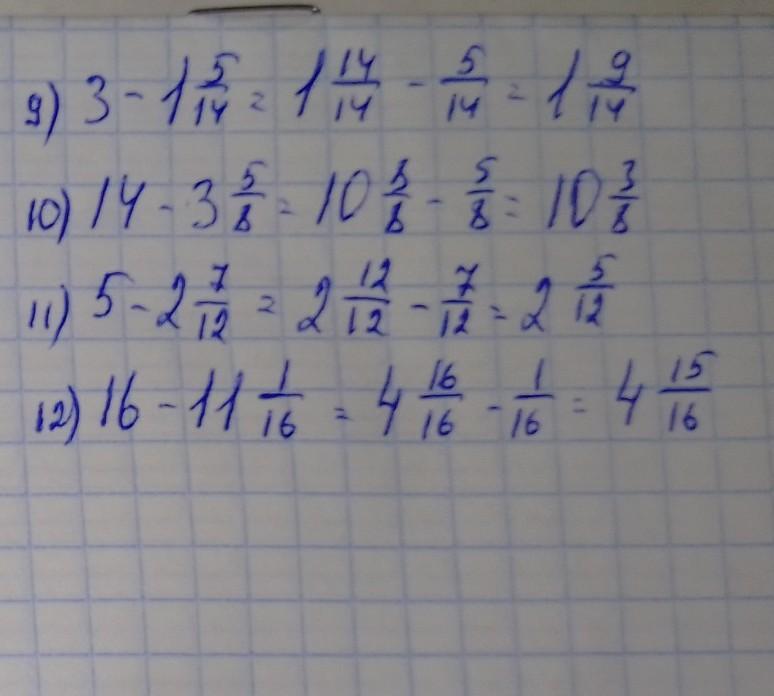 9) 3 - 1 5/14 = 1 14/14 - 5/14 = 1 9/14
10) 14 - 3 5/8 = 10 8/8 - 5/8 = 10 3/8
11) 5 - 2 7/12 = 2 12/12 - 7/12 = 2 5/12
12) 16 - 11 1/16 = 4 16/16 - 1/16 = 4 15/16